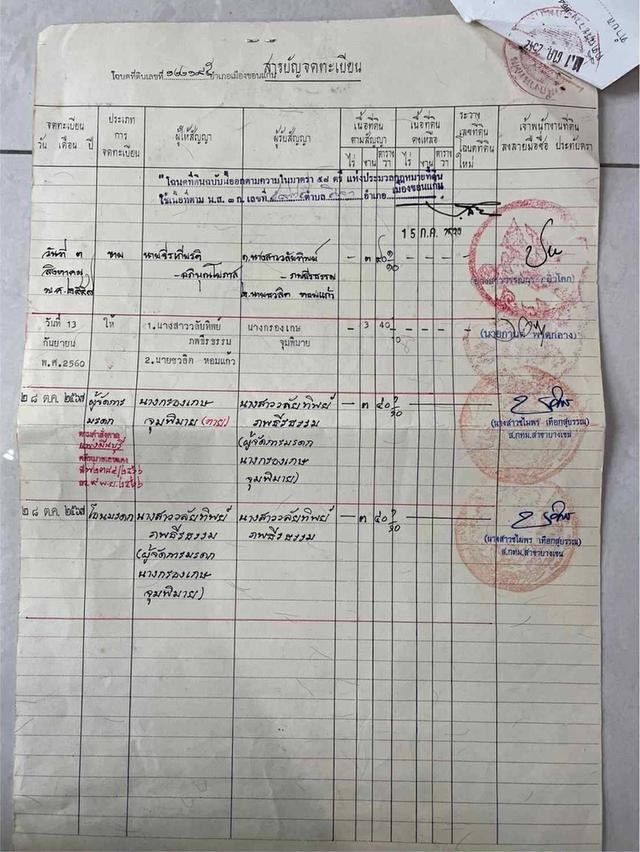 สารบัญจดทะเบียน
โฉนดที่ดินเลขที่ อำเภอเมืองขอนแก่น
จดทะเบียน
วัน เดือน ปี
ประเภท
การ
จดทะเบียน
ผู้ให้สัญญา
ผู้รับสัญญา
เนื้อที่ดิน
ตามสัญญา
ไร่ งาน ตารางวา
เนื้อที่ดิน
คงเหลือ
ไร่ งาน ตารางวา
ระวาง
เลขที่ดิน
โฉนดที่ดิน
ใหม่
เจ้าพนักงานที่ดิน
ลงลายมือชื่อ ประทับตรา
"โฉนดที่ดินฉบับนี้ออกตามความในมาตรา ๕๘ ตรี แห่งประมวลกฎหมายที่ดิน
ใช้เนื้อที่ตาม น.ส. ๓ ก. เลขที่ ตำบล อำเภอ เมืองขอนแก่น
15 ก.ค.
วันที่ ๓
สิงหาคม
พ.ศ.
ขาย
๑.นางสาววลัยทิพย์
ภพธีรธรรม
๒.นายชวลิต หอมแก้ว
– ๓ ๔๐ ๑/๑๐
วันที่ 13
กันยายน
พ.ศ.2560
ให้
1.นางสาววลัยทิพย์
ภพธีรธรรม
2.นายชวลิต หอมแก้ว
นางกรองเกษ
จุมพิมาย
– 3 40 – – – –
๒๘ ต.ค. ๒๕๖๗
ผู้จัดการ
มรดก
ตามคำสั่งศาล
นางกรองเกษ
จุมพิมาย (ตาย)
นางสาววลัยทิพย์
ภพธีรธรรม
(ผู้จัดการมรดก
นางกรองเกษ
จุมพิมาย)
– ๓ ๔๐ ๑/๑๐
(นางสาวชไมพร เทือกสุบรรณ)
ส.กทม.สาขาบางเขน
๒๘ ต.ค. ๒๕๖๗
โอนมรดก
นางสาววลัยทิพย์
ภพธีรธรรม
(ผู้จัดการมรดก
นางกรองเกษ
จุมพิมาย)
นางสาววลัยทิพย์
ภพธีรธรรม
– ๓ ๔๐ ๑/๑๐
(นางสาวชไมพร เทือกสุบรรณ)
ส.กทม.สาขาบางเขน